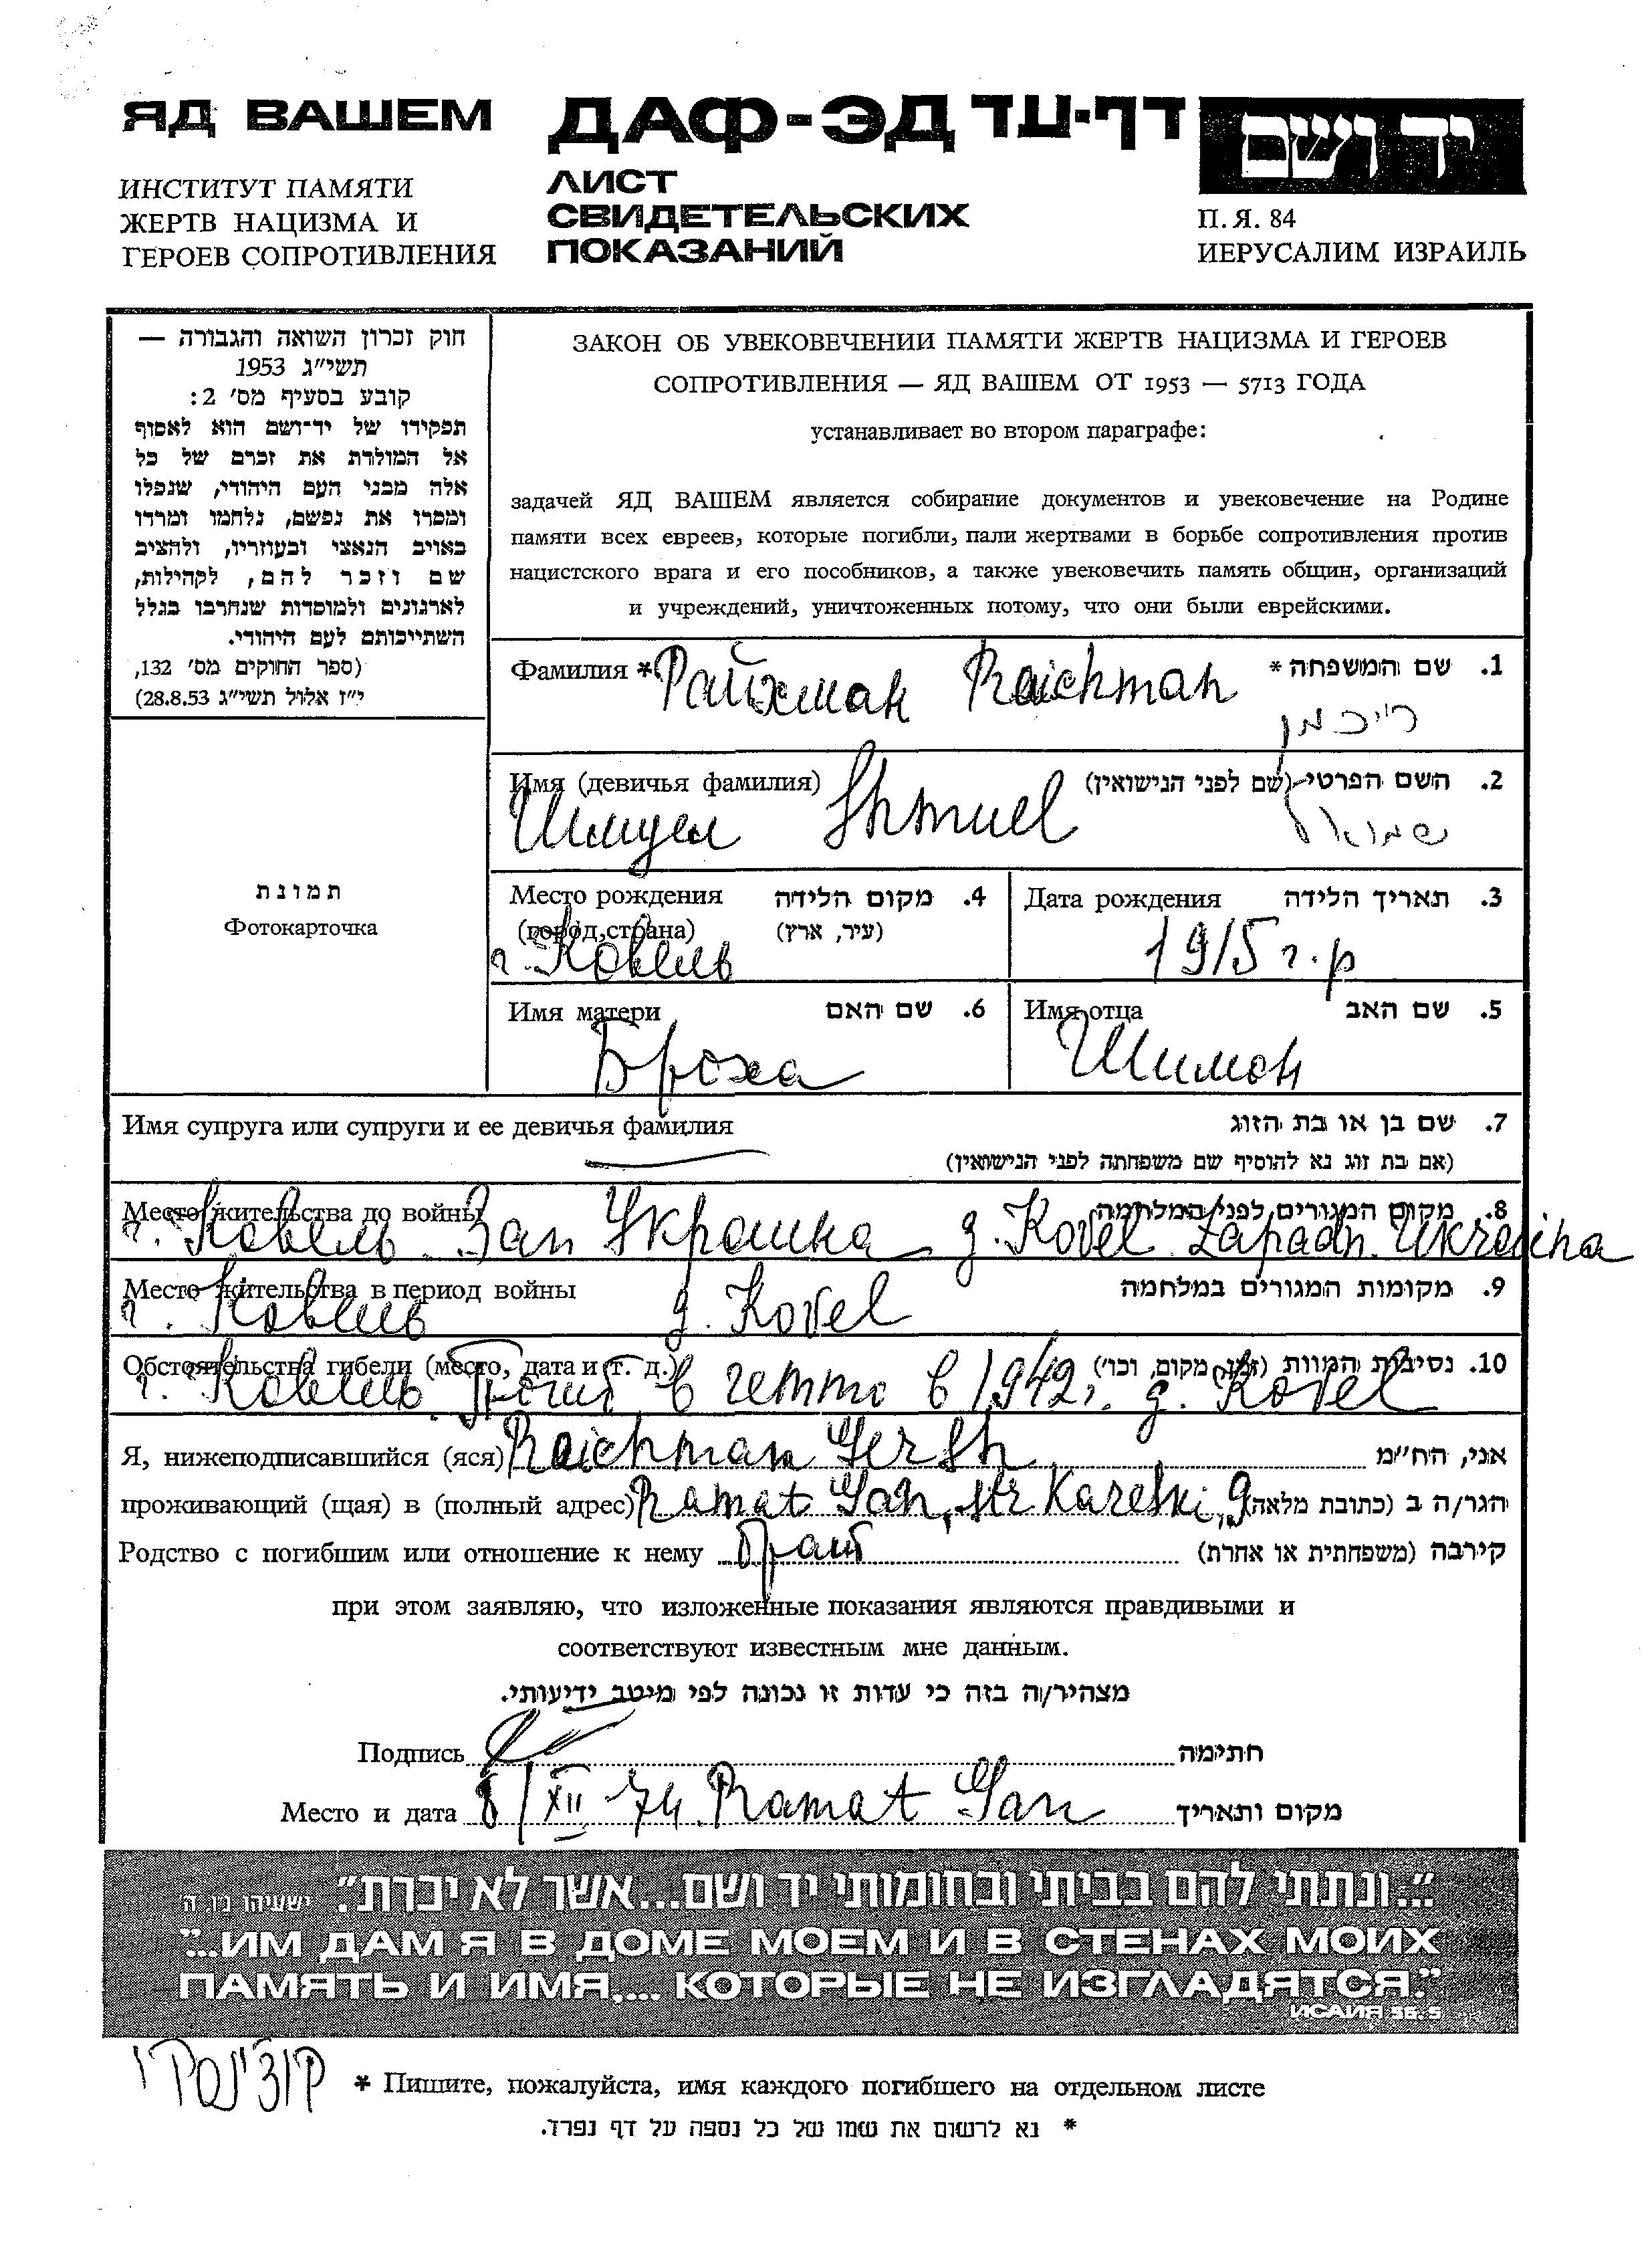 ЯД ВАШЕМ
ИНСТИТУТ ПАМЯТИ
ЖЕРТВ НАЦИЗМА И
ГЕРОЕВ СОПРОТИВЛЕНИЯ
ДАФ-ЭД דף-עד
ЛИСТ
СВИДЕТЕЛЬСКИХ
ПОКАЗАНИЙ
יד ושם
П.Я. 84
ИЕРУСАЛИМ ИЗРАИЛЬ
חוק זכרון השואה והגבורה —
תשי״ג 1953
קובע בסעיף מס׳ 2:
תפקידו של יד־ושם הוא לאסוף
אל המולדת את זכרם של כל
אלה מבני העם היהודי, שנפלו
ומסרו את נפשם, נלחמו ומרדו
באויב הנאצי ובעוזריו, ולהציב
שם וזכר להם, לקהילות,
לארגונים ולמוסדות שנחרבו בגלל
השתייכותם לעם היהודי.
(ספר החוקים מס׳ 132,
י״ז אלול תשי״ג 28.8.53)
תמונת
Фотокарточка
ЗАКОН ОБ УВЕКОВЕЧЕНИИ ПАМЯТИ ЖЕРТВ НАЦИЗМА И ГЕРОЕВ
СОПРОТИВЛЕНИЯ — ЯД ВАШЕМ ОТ 1953 — 5713 ГОДА
устанавливает во втором параграфе:
задачей ЯД ВАШЕМ является собирание документов и увековечение на Родине
памяти всех евреев, которые погибли, пали жертвами в борьбе сопротивления против
нацистского врага и его пособников, а также увековечить память общин, организаций
и учреждений, уничтоженных потому, что они были еврейскими.
Фамилия * Райхман Raichman 1. שם המשפחה *
רייכמן
Имя (девичья фамилия) 2. השם הפרטי (שם לפני הנישואין)
Шмуел Shmuel שמואל
Место рождения 4. מקום הלידה
(город, страна) (עיר, ארץ)
г. Ковель
Дата рождения 3. תאריך הלידה
1915 г.р
Имя матери 6. שם האם
Броха
Имя отца 5. שם האב
Шимон
Имя супруга или супруги и ее девичья фамилия 7. שם בן או בת הזוג
(אם בת זוג נא להוסיף שם משפחתה לפני הנישואין)
Место жительства до войны 8. מקום המגורים לפני המלחמה
г. Ковель Зап Украина g. Kovel Zapadn. Ukraina
Место жительства в период войны 9. מקומות המגורים במלחמה
г. Ковель g. Kovel
Обстоятельства гибели (место, дата и т. д.) 10. נסיבות המוות (זמן, מקום, וכו׳)
г. Ковель Погиб в гетто в 1942г. g. Kovel
Я, нижеподписавшийся (яся) Raichman Gersh אני, הח״מ
проживающий (щая) в (полный адрес) Ramat Gan, str Kareski, 9 הגר/ה ב (כתובת מלאה)
Родство с погибшим или отношение к нему брат קירבה (משפחתית או אחרת)
при этом заявляю, что изложенные показания являются правдивыми и
соответствуют известным мне данным.
מצהיר/ה בזה כי עדות זו נכונה לפי מיטב ידיעותי.
Подпись חתימה
Место и дата 8/XII-74. Ramat Gan מקום ותאריך
"...ונתתי להם בביתי ובחומותי יד ושם...אשר לא יכרת". ישעיהו נ״ו, ה׳
"...ИМ ДАМ Я В ДОМЕ МОЕМ И В СТЕНАХ МОИХ
ПАМЯТЬ И ИМЯ.... КОТОРЫЕ НЕ ИЗГЛАДЯТСЯ."
ИСАИЯ 56.5
* Пишите, пожалуйста, имя каждого погибшего на отдельном листе
* נא לרשום את שמו של כל נספה על דף נפרד.